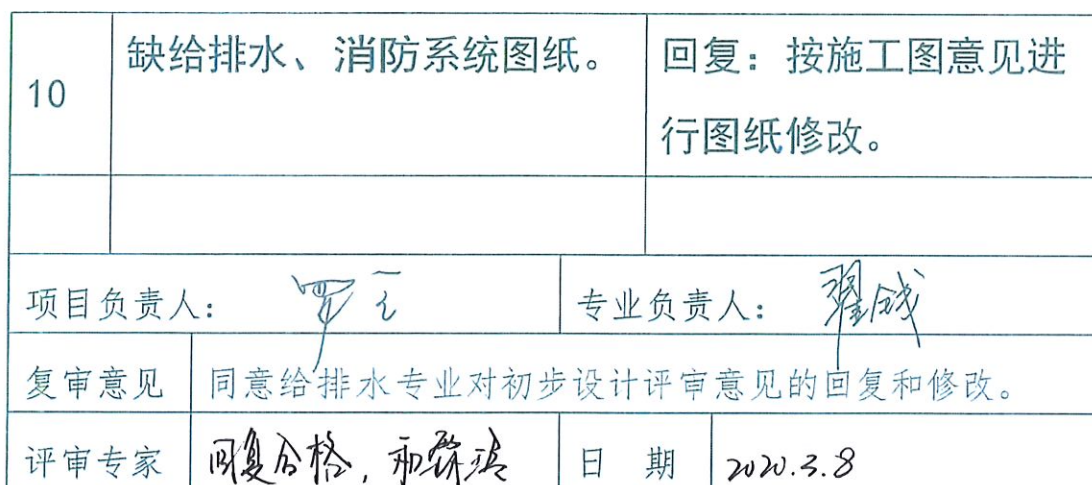 10
缺给排水、消防系统图纸。
回复：按施工图意见进
行图纸修改。
项目负责人：
专业负责人：翟
复审意见
同意给排水专业对初步设计评审意见的回复和修改。
评审专家
回复合格,
日 期
2020.3.8